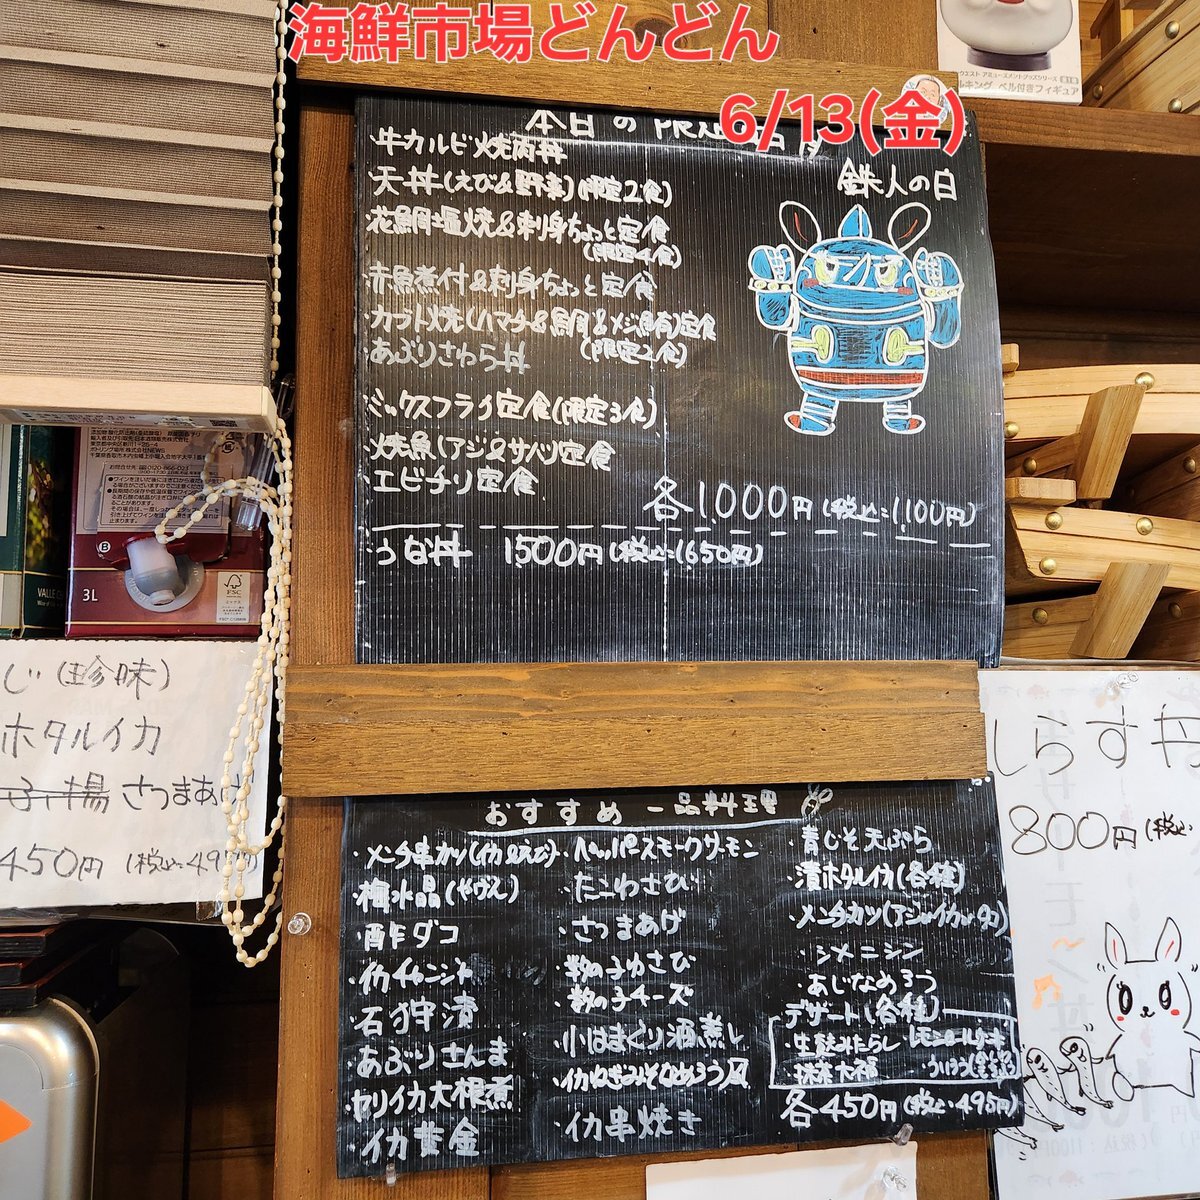 海鮮市場どんどん
6/13(金)
鉄人の日
・牛カルビ焼肉丼
・天丼(えび&野菜)(限定2食)
・花鯛塩焼&刺身ちょっと定食
(限定4食)
・赤魚煮付&刺身ちょっと定食
・カブト焼(ハマチ&鯛&メジ鮪)定食
・あぶりさわら丼
(限定2食)
・ミックスフライ定食(限定3食)
・焼魚(アジ&サバ)定食
・エビチリ定食
各1,000円(税込:1,100円)
1500円(税込:1650円)
おすすめ一品料理
・メンチ串カツ(イカ&えび)
・梅水晶(やげん)
・酢ダコ
・イカチャンジャ
・石狩漬
・あぶりさんま
・ヤリイカ大根煮
・イカ黄金
・ペッパースモークサーモン
・たこわさび
・さつまあげ
・数の子わさび
・数の子チーズ
・小はまぐり酒煮し
・イカねぎみそなめろう風
・イカ串焼き
・青じそ天ぷら
・漬ホタルイカ(各種)
・シメニシン
・あじなめろう
・デザート(各種)
・生麩みたらし
・抹茶大福
各450円(税込:495円)
じ(珍味)
ホタルイカ
さつまあげ
450円(税込:495円)
しらす丼
800円(税込
3L
B
FSC
ベル付きフィギュア